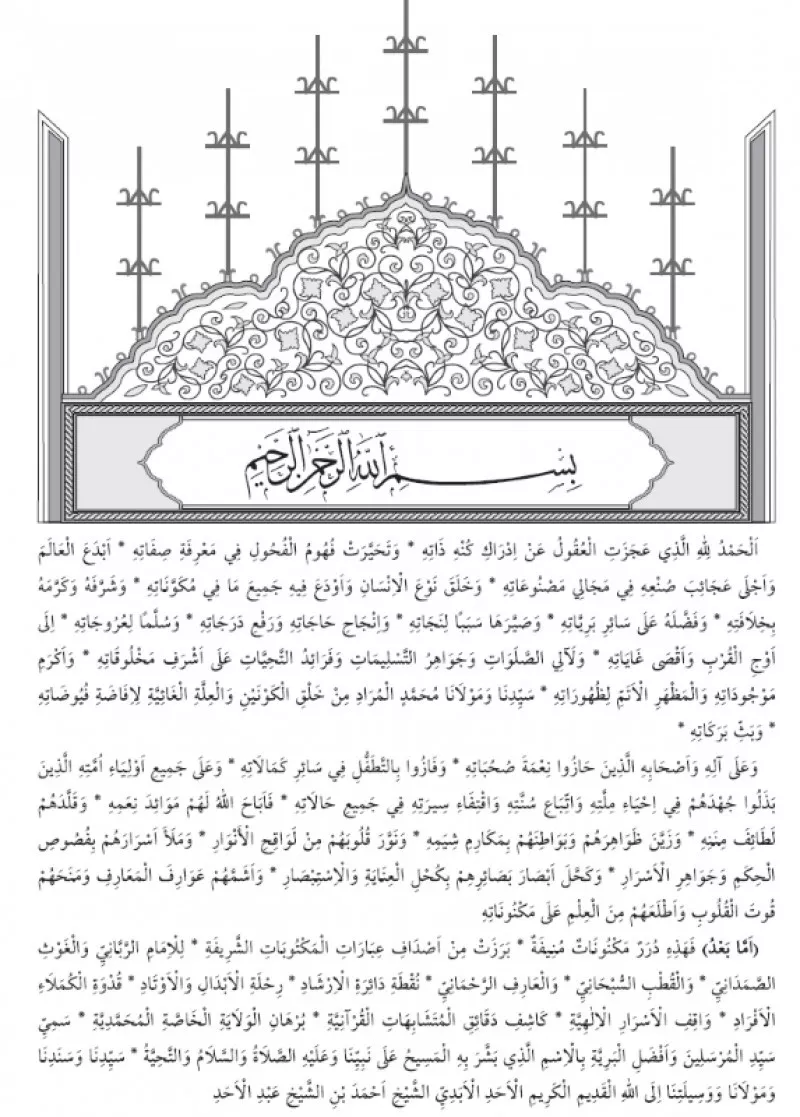 بِسْمِ اللهِ الرَّحْمٰنِ الرَّحِيمِ
اَلْحَمْدُ لِلهِ الَّذِي عَجَزَتِ الْعُقُولُ عَنْ اِدْرَاكِ كُنْهِ ذَاتِهِ * وَتَحَيَّرَتْ فُهُومُ الْفُحُولِ فِي مَعْرِفَةِ صِفَاتِهِ * اَبْدَعَ الْعَالَمَ
وَاَجْلَى عَجَائِبَ صُنْعِهِ فِي مَجَالِي مَصْنُوعَاتِهِ * وَخَلَقَ نَوْعَ الْاِنْسَانِ وَاَوْدَعَ فِيهِ جَمِيعَ مَا فِي مُكَوَّنَاتِهِ * وَشَرَّفَهُ وَكَرَّمَهُ
بِخِلَافَتِهِ * وَفَضَّلَهُ عَلَى سَائِرِ بَرِيَّاتِهِ * وَصَيَّرَهَا سَبَبًا لِنَجَاتِهِ * وَاِنْجَاحِ حَاجَاتِهِ وَرَفْعِ دَرَجَاتِهِ * وَسُلَّمًا لِعُرُوجَاتِهِ * اِلَى
اَوْجِ الْقُرْبِ وَاَقْصَى غَايَاتِهِ * وَلَآلِي الصَّلَوَاتِ وَجَوَاهِرُ التَّسْلِيمَاتِ وَفَرَائِدُ التَّحِيَّاتِ عَلَى اَشْرَفِ مَخْلُوقَاتِهِ * وَاَكْرَمِ
مَوْجُودَاتِهِ وَالْمَظْهَرِ الْاَتَمِّ لِظُهُورَاتِهِ * سَيِّدِنَا وَمَوْلَانَا مُحَمَّدٍ الْمُرَادِ مِنْ خَلْقِ الْكَوْنَيْنِ وَالْعِلَّةِ الْغَائِيَّةِ لِاِفَاضَةِ فُيُوضَاتِهِ
* وَبَثِّ بَرَكَاتِهِ *
وَعَلَى آلِهِ وَاَصْحَابِهِ الَّذِينَ حَازُوا نِعْمَةَ صُحْبَاتِهِ * وَفَازُوا بِالتَّطَفُّلِ فِي سَائِرِ كَمَالَاتِهِ * وَعَلَى جَمِيعِ اَوْلِيَاءِ اُمَّتِهِ الَّذِينَ
بَذَلُوا جُهْدَهُمْ فِي اِحْيَاءِ مِلَّتِهِ وَاتِّبَاعِ سُنَّتِهِ وَاقْتِفَاءِ سِيرَتِهِ فِي جَمِيعِ حَالَاتِهِ * فَاَبَاحَ اللهُ لَهُمْ مَوَائِدَ نِعَمِهِ * وَقَلَّدَهُمْ
لَطَائِفَ مِنَنِهِ * وَزَيَّنَ ظَوَاهِرَهُمْ وَبَوَاطِنَهُمْ بِمَكَارِمِ شِيَمِهِ * وَنَوَّرَ قُلُوبَهُمْ مِنْ لَوَاقِحِ الْأَنْوَارِ * وَمَلَأَ اَسْرَارَهُمْ بِفُصُوصِ
الْحِكَمِ وَجَوَاهِرِ الْاَسْرَارِ * وَكَحَّلَ اَبْصَارَ بَصَائِرِهِمْ بِكُحْلِ الْعِنَايَةِ وَالْاِسْتِبْصَارِ * وَاَشَمَّهُمْ عَوَارِفَ الْمَعَارِفِ وَمَنَحَهُمْ
قُوتَ الْقُلُوبِ وَاَطْلَعَهُمْ مِنَ الْعِلْمِ عَلَى مَكْنُونَاتِهِ
(اَمَّا بَعْدُ) فَهَذِهِ دُرَرٌ مَكْنُونَاتٌ مُنِيفَةٌ * بَرَزَتْ مِنْ اَصْدَافِ عِبَارَاتِ الْمَكْتُوبَاتِ الشَّرِيفَةِ * لِلْاِمَامِ الرَّبَّانِيِّ وَالْغَوْثِ
الصَّمَدَانِيِّ * وَالْقُطْبِ السُّبْحَانِيِّ * وَالْعَارِفِ الرَّحْمَانِيِّ * نُقْطَةِ دَائِرَةِ الْاِرْشَادِ * رِحْلَةِ الْاَبْدَالِ وَالْاَوْتَادِ * قُدْوَةِ الْكُمَلَاءِ
الْاَفْرَادِ * وَاقِفِ الْاَسْرَارِ الْاِلٰهِيَّةِ * كَاشِفِ دَقَائِقِ الْمُتَشَابِهَاتِ الْقُرْآنِيَّةِ * بُرْهَانِ الْوِلَايَةِ الْخَاصَّةِ الْمُحَمَّدِيَّةِ * سَمِيِّ
سَيِّدِ الْمُرْسَلِينَ وَاَفْضَلِ الْبَرِيَّةِ بِالْاِسْمِ الَّذِي بَشَّرَ بِهِ الْمَسِيحُ عَلَى نَبِيِّنَا وَعَلَيْهِ الصَّلَاةُ وَالسَّلَامُ وَالتَّحِيَّةُ * سَيِّدِنَا وَسَنَدِنَا
وَمَوْلَانَا وَوَسِيلَتِنَا اِلَى اللهِ الْقَدِيمِ الْكَرِيمِ الْاَحَدِ الْاَبَدِيِّ الشَّيْخِ اَحْمَدَ بْنِ الشَّيْخِ عَبْدِ الْاَحَدِ